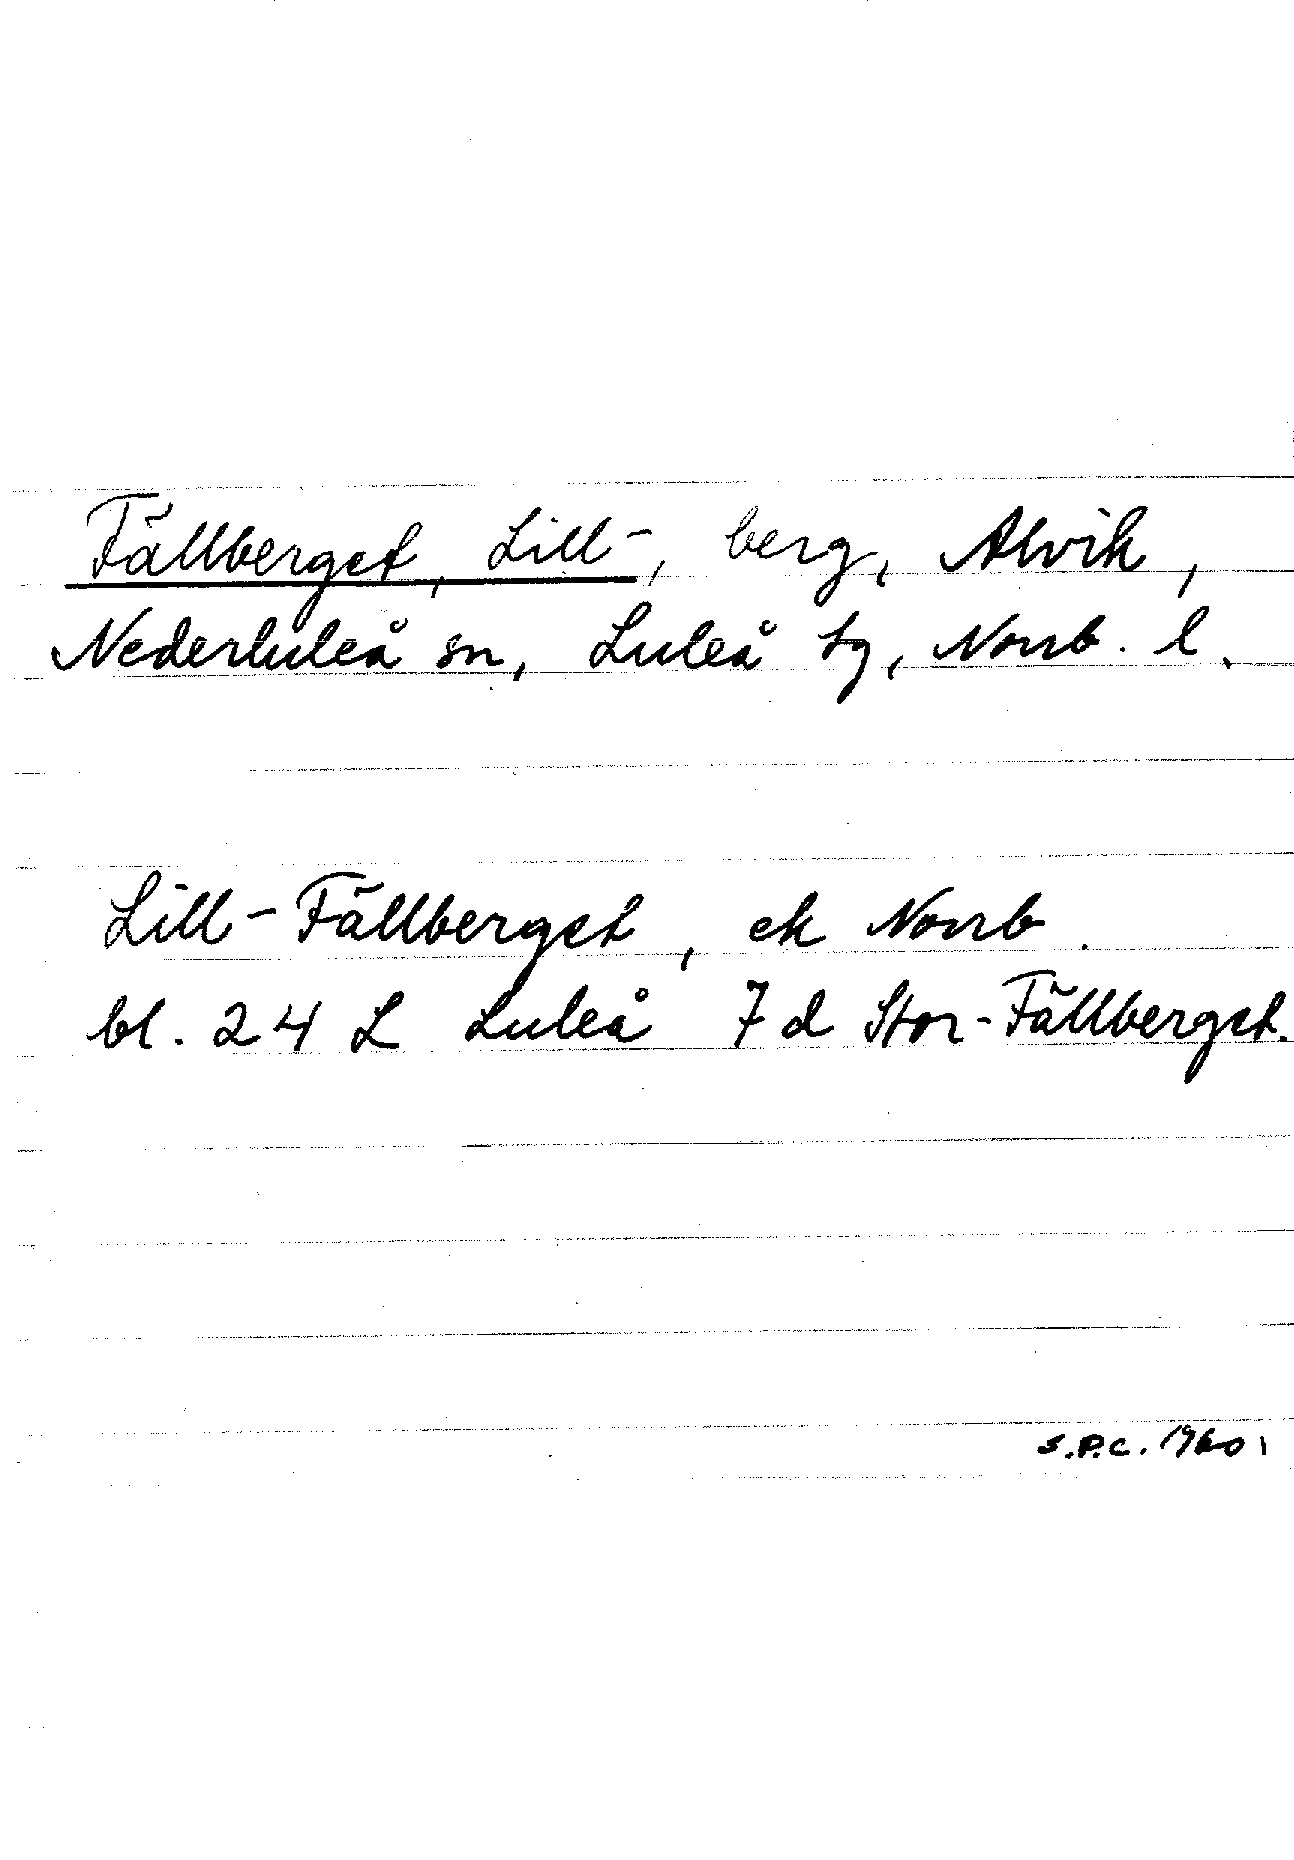 Fällberget, Lill-, berg, Alvik,
Nederluleå sn, Luleå tg, Norrb. l.
Lill-Fällberget, ek Norrb.
bl. 24 L Luleå 7d Stor-Fällberget.
S.P.C. 1960